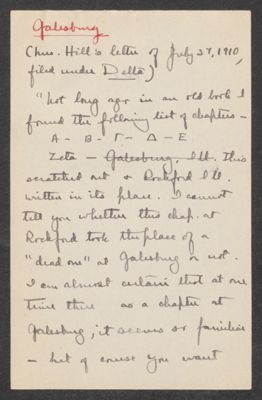 Galesburg
(Chas. Hill's letter of July 27, 1910,
filed under Delta)
"Not long ago in an old book I
found the following list of chapters —
A - B - Γ - Δ - E
Zeta — Galesburg, Ill. This
scratched out & Rockford Ill.
written in its place. I cannot
tell you whether this chap. at
Rockford took the place of a
"dead one" at Galesburg or not.
I am almost certain that at one
time there was a chapter at
Galesburg; it seems so familiar
— but of course you want